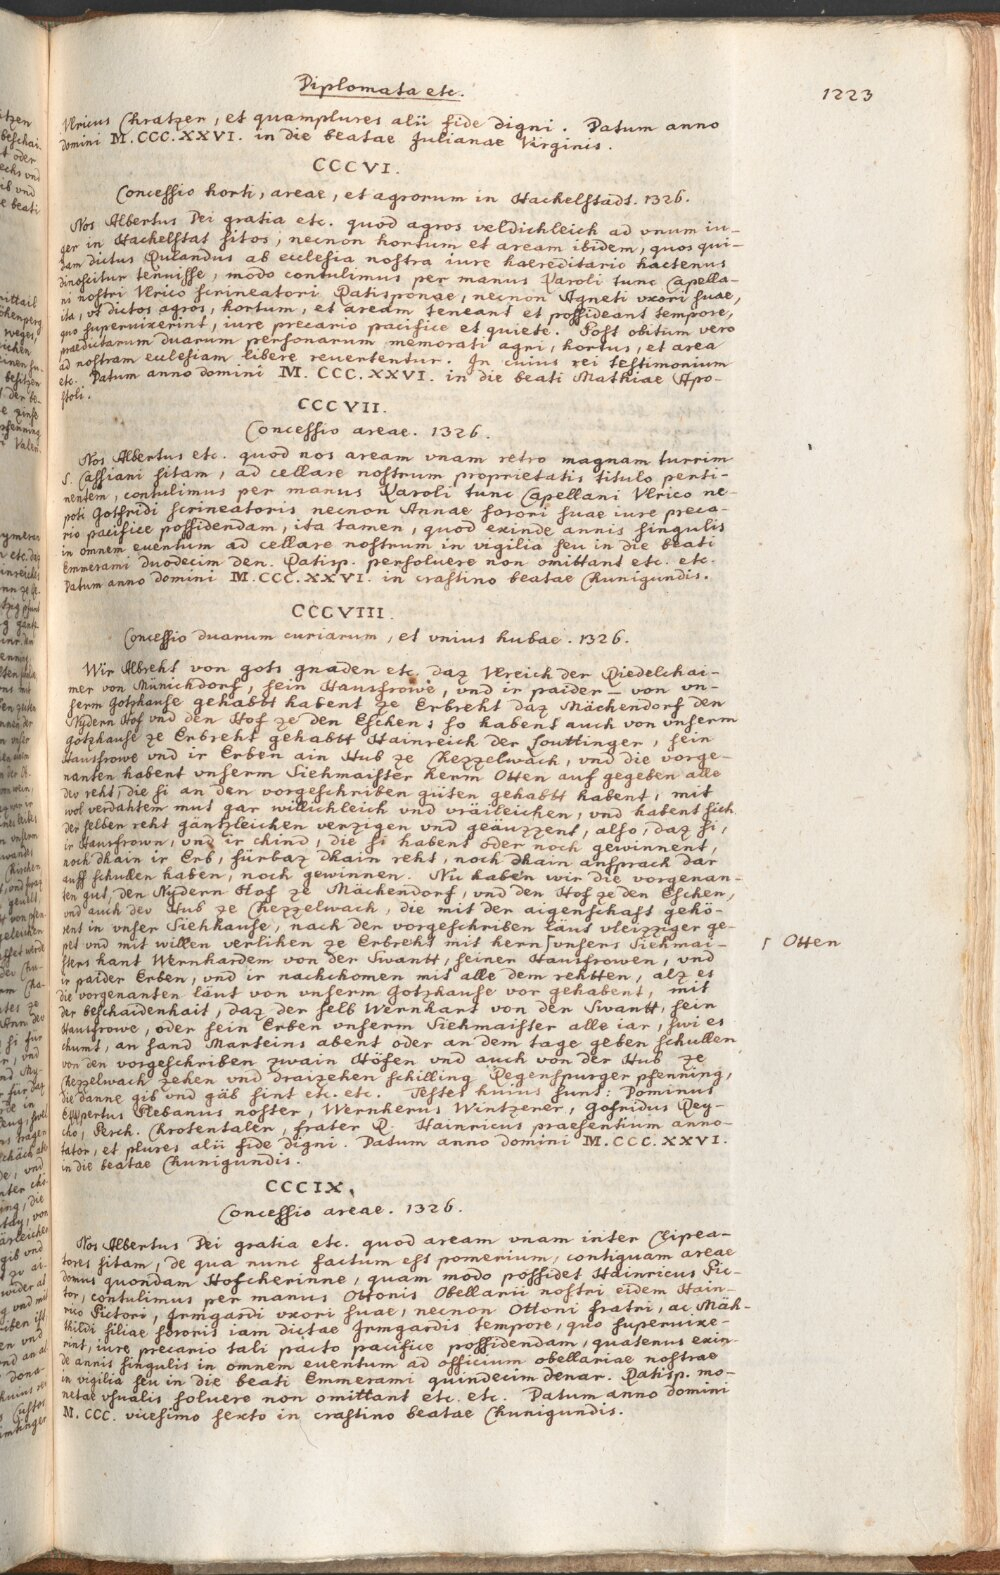 Diplomata etc.
1223
Vlricus Chratzer, et quamplures alii fide digni. Datum anno
domini M.CCC.XXVI. in die beatae Julianae Virginis.
CCCVI.
Concessio horti, areae, et agrorum in Hackelstadt. 1326.
Nos Albertus Dei gratia etc. quod agros veldichleich ad vnum iu-
ger in Hackelstat sitos, necnon hortum et aream ibidem, quos qui-
dam dictus Rulandus ab ecclesia nostra iure haereditario hactenus
dinoscitur tennisse, modo contulimus per manus Karoli tunc Capella-
ni nostri Vlrico scrineatori Ratisponae, necnon Agneti vxori suae,
ita, vt dictos agros, hortum, et aream teneant et possideant tempore,
quo superuixerint, iure precario pacifice et quiete. Post obitum vero
praedictarum duarum personarum memorati agri, hortus, et area
ad nostram ecclesiam libere reuertentur. In cuius rei testimonium
etc. Datum anno domini M. CCC.XXVI. in die beati Mathiae Apo-
stoli.
CCCVII.
Concessio areae. 1326.
Nos Albertus etc. quod nos aream vnam retro magnam turrim
S. Cassiani sitam, ad cellare nostrum proprietatis titulo perti-
nentem, contulimus per manus Karoli tunc Capellani Vlrico ne-
poti Gotfridi scrineatoris necnon Annae sorori suae iure preca-
rio pacifice possidendam, ita tamen, quod exinde annis singulis
in omnem euentum ad cellare nostrum in vigilia seu in die beati
Emmerami duodecim den. Ratisp. persoluere non omittant etc. etc.
Datum anno domini M.CCC.XXVI. in crastino beatae Chunigundis.
CCCVIII.
Concessio duarum curiarum, et vnius hubae. 1326.
Wir Albreht von gots gnaden etc. daz Vlreich der Riedelchai-
mer von Münichdorf, sein Hausfrowe, vnd ir paider – von vn-
serm Gotzhause gehabbt habent ze Erbreht daz Mächendorf den
Nydern Hof vnd den Hof ze den Eschen; so habent auch von vnserm
gotzhause ze Erbreht gehabbt Hainreich der Louttinger, sein
Hausfrowe vnd ir Erben ain Hub ze Chezzelwach, vnd die vorge-
nanten habent vnserm Siehmaister herrn Otten auf gegeben alle
dev reht, die si an den vorgeschriben güten gehabtt habent, mit
wol verdahtem mut gar willichleich vnd vräileichen, vnd habent sich
der selben reht gäntzleichen verzigen vnd geäuzzent, also, daz si,
ir Hausfrown, vnd ir chind, die si habent oder noch gewinnent,
noch dhain ir Erb, fürbaz dhain reht, noch dhain ansprach dar
auff schullen haben, noch gewinnen. Nu haben wir die vorgenan-
ten gut, den Nydern Hof ze Mächendorf, vnd den Hof ze den Eschen,
vnd auch dev Hub ze Chezzelwach, die mit der aigenschaft gehö-
rent in vnser Siehhause, nach der vorgeschriben läut vleizziger ge-
pet vnd mit willen verlihen ze Erbreht mit hern ⌈ vnsers Siehmai-
⌈ Otten
sters hant Wernhardem von der Swantt, seiner Hausfrowen, vnd
ir paider Erben, vnd ir nachchomen mit alle dem rehtten, alz es
die vorgenanten läut von vnserm Gotzhause vor gehabent, mit
der beschaidenhait, daz der selb Wernhart von der Swantt, sein
Hausfrowe, oder sein Erben vnserm Siehmaister alle iar, swi es
chumt, an sand Marteins abent oder an dem tage geben schullen
von den vorgeschriben zwain Höfen vnd auch von der Hub ze
Chezzelwach zehen vnd draizehen schilling Regenspurger pfenning,
die danne gib vnd gäb sint etc. etc. Testes huius sunt: Dominus
Ekkpertus Plebanus noster, Wernherus Wintzerer, Gofridus Rey-
cho, Perch. Chrotentaler, frater R. Hainricus praesentium anno-
tator, et plures alii fide digni. Datum anno domini M.CCC.XXVI.
in die beatae Chunigundis.
CCCIX.
Concessio areae. 1326.
Nos Albertus Dei gratia etc. quod aream vnam inter Clipea-
tores sitam, de qua nunc factum est pomerium, contiguam areae
domus quondam Hofcherinne, quam modo possidet Hainricus Pic-
tor, contulimus per manus Ottonis Obellarii nostri eidem Hain-
rico Pictori, Irmgardi vxori suae, necnon Ottoni fratri, ac Mäh-
thildi filiae sororis iam dictae Irmgardis tempore, quo superuixe-
rint, iure precario tali pacto pacifice possidendam, quatenus exin-
de annis singulis in omnem euentum ad officium obellariae nostrae
in vigilia seu in die beati Emmerami quindecim denar. Ratisp. mo-
netae vsualis soluere non omittant etc. etc. Datum anno domini
M. CCC. vicesimo sexto in crastino beatae Chunigundis.